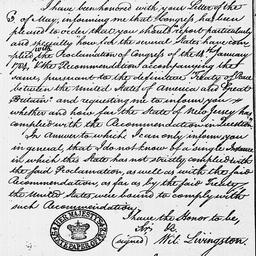 I have been honored with your Letter of the
3. of May, informing me that Congress has been
pleased to order that you should report particularly
and specially how far the several States have com-
plied with the Proclamation of Congress of the 14 January
1784, & the Recommendation accompanying the
same, pursuant to the definitive Treaty of Peace
between the United States of America and Great
Britain and requesting me to inform you
whether and how far the State of New Jersey has
complied with the Recommendation in Question
In Answer to which I can only inform you
in general, that I do not know of a single Instance
in which this State has not strictly complied with
the said Proclamation, as well as with the said
Recommendation, as far as by the said Treaty
the United States were bound to comply with
such Recommendation.
I have the Honor to be,
Sir, &c.
(signed) Wil: Livingston.
HER MAJESTY'S
STATE PAPER OFFICE